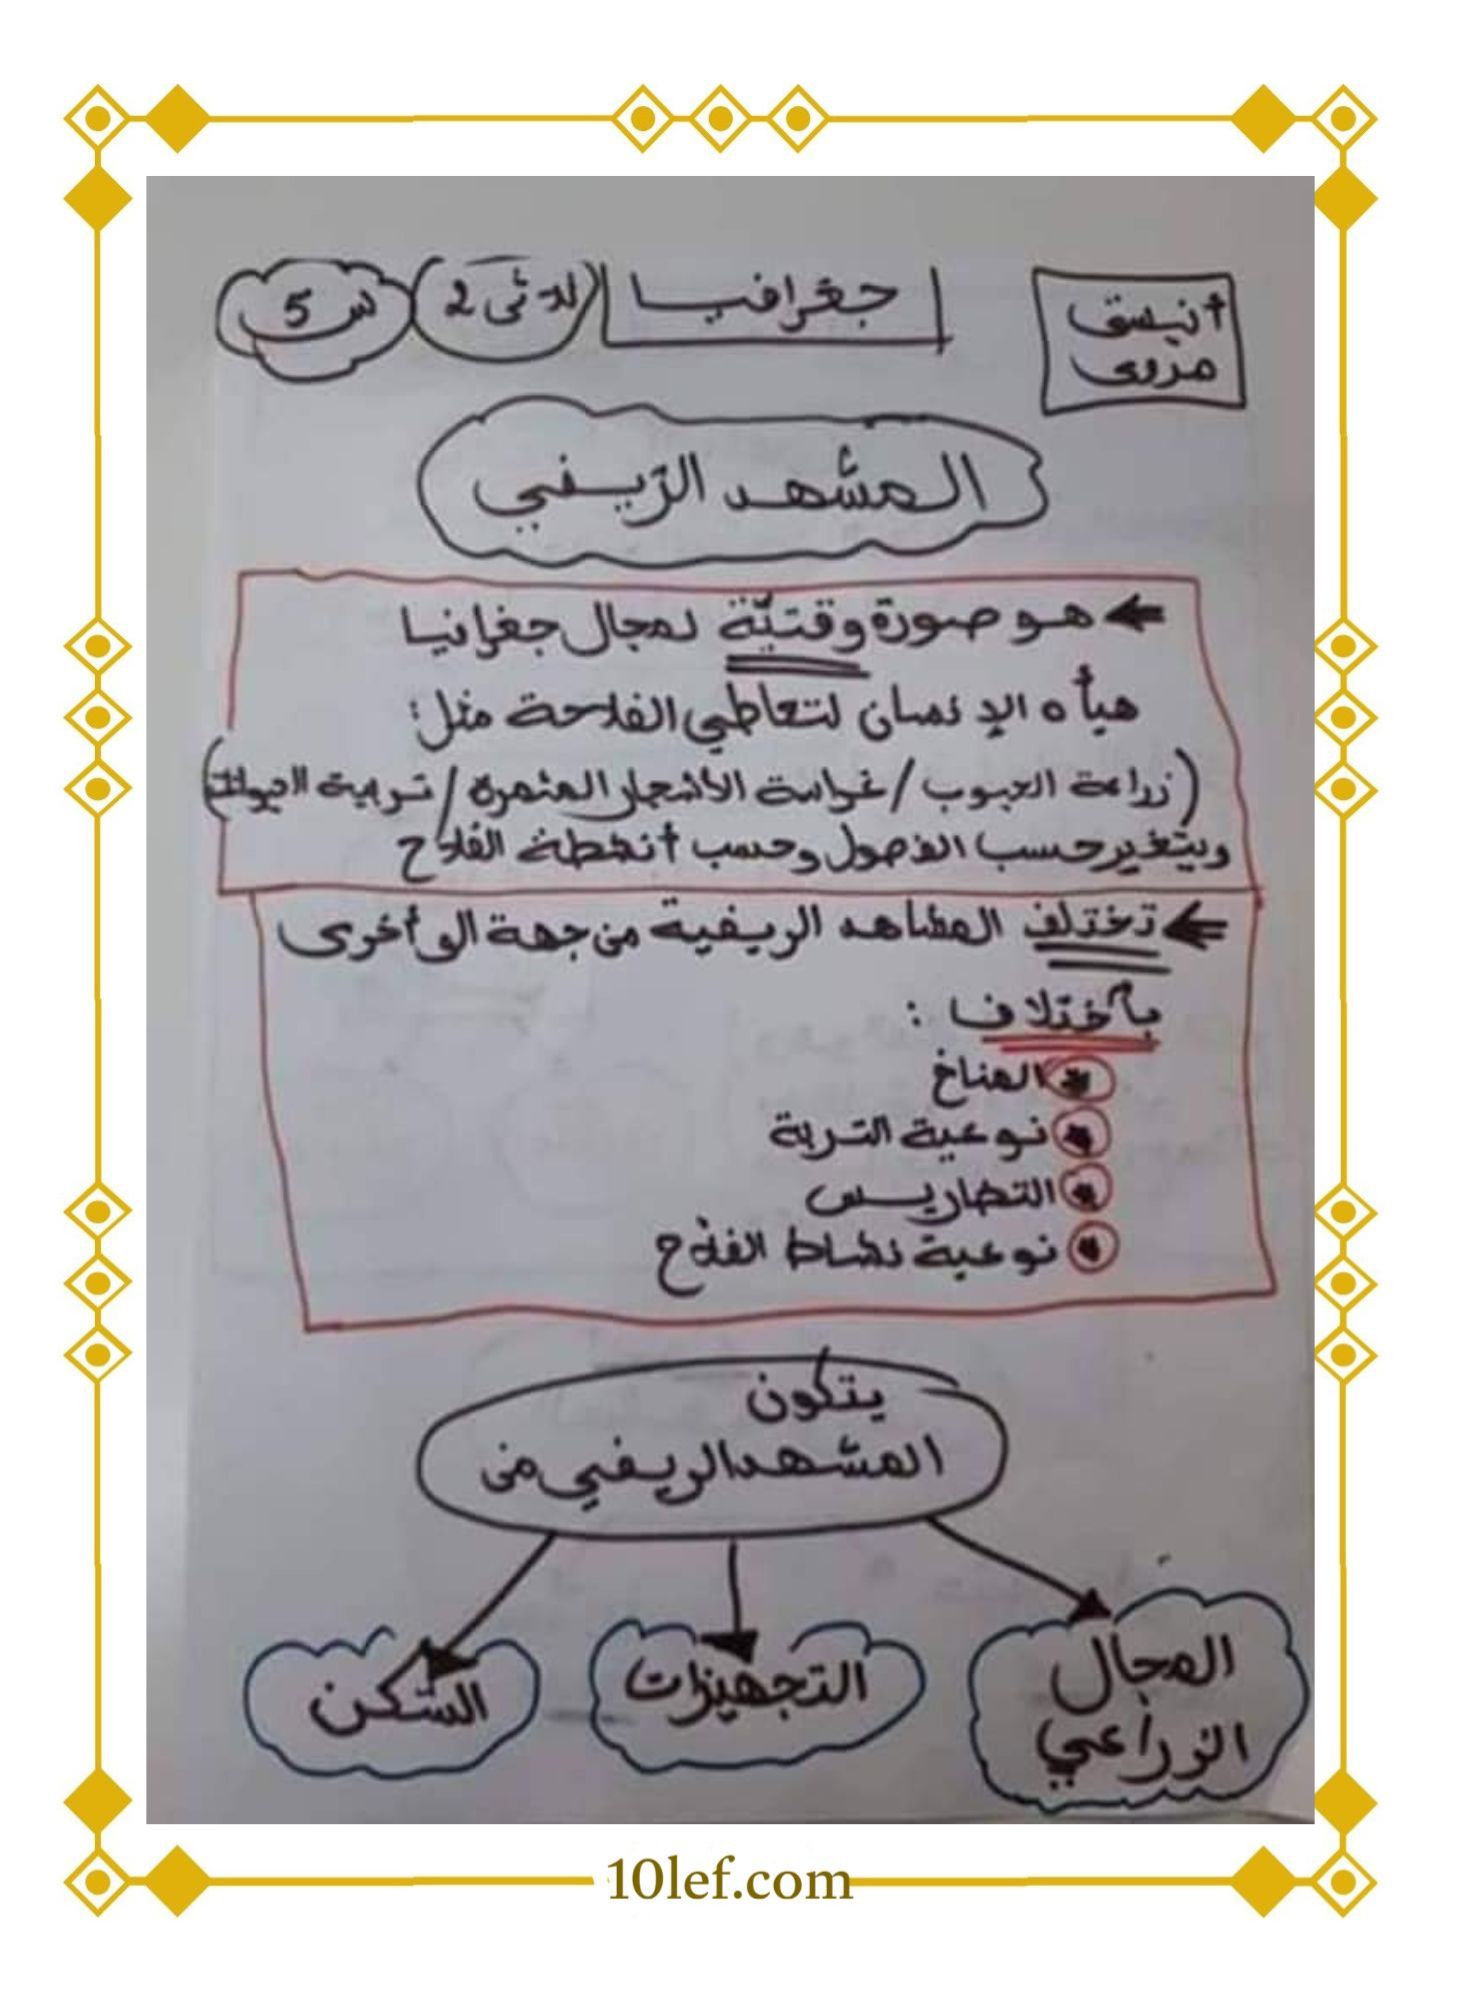 أنيسة
مروى
جغرافيا
ثلاثي 2
س 5
المشهد الرّيفي
هو صورة وقتيّة لمجال جغرافيا
هيأه الإنسان لتعاطي الفلاحة مثل:
(زراعة الحبوب / غراسة الأشجار المثمرة / تربية الحيوانات)
ويتغير حسب الفصول وحسب أنشطة الفلاح
تختلف المشاهد الريفية من جهة الى أخرى
بأختلاف :
المناخ
نوعية التربة
التضاريس
نوعية نشاط الفلاح
يتكون
المشهد الريفي من
المجال
الزراعي
التجهيزات
السّكن
10lef.com